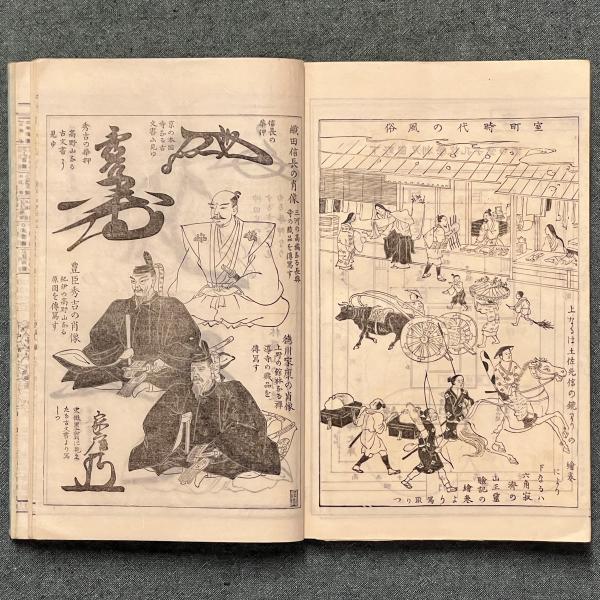 室町時代の風俗
上なるは土佐光信の鏡わりの繪巻
により
下なるハ
六角寂
濟の
山王靈
驗記の
繪巻
より寫取りつ
織田信長の肖像
三河の高橋なる長興
寺の蔵品を傳寫す
信長の
華押
京の本圀
寺なる古
文書に見ゆ
秀吉の華押
高野山なる
古文書に
見ゆ
豊臣秀吉の肖像
紀伊の高野山なる
原圖を傳寫す
徳川家康の肖像
上野の館林なる禪
導寺の蔵品を
傳寫す
たる古文書より寫
しつ